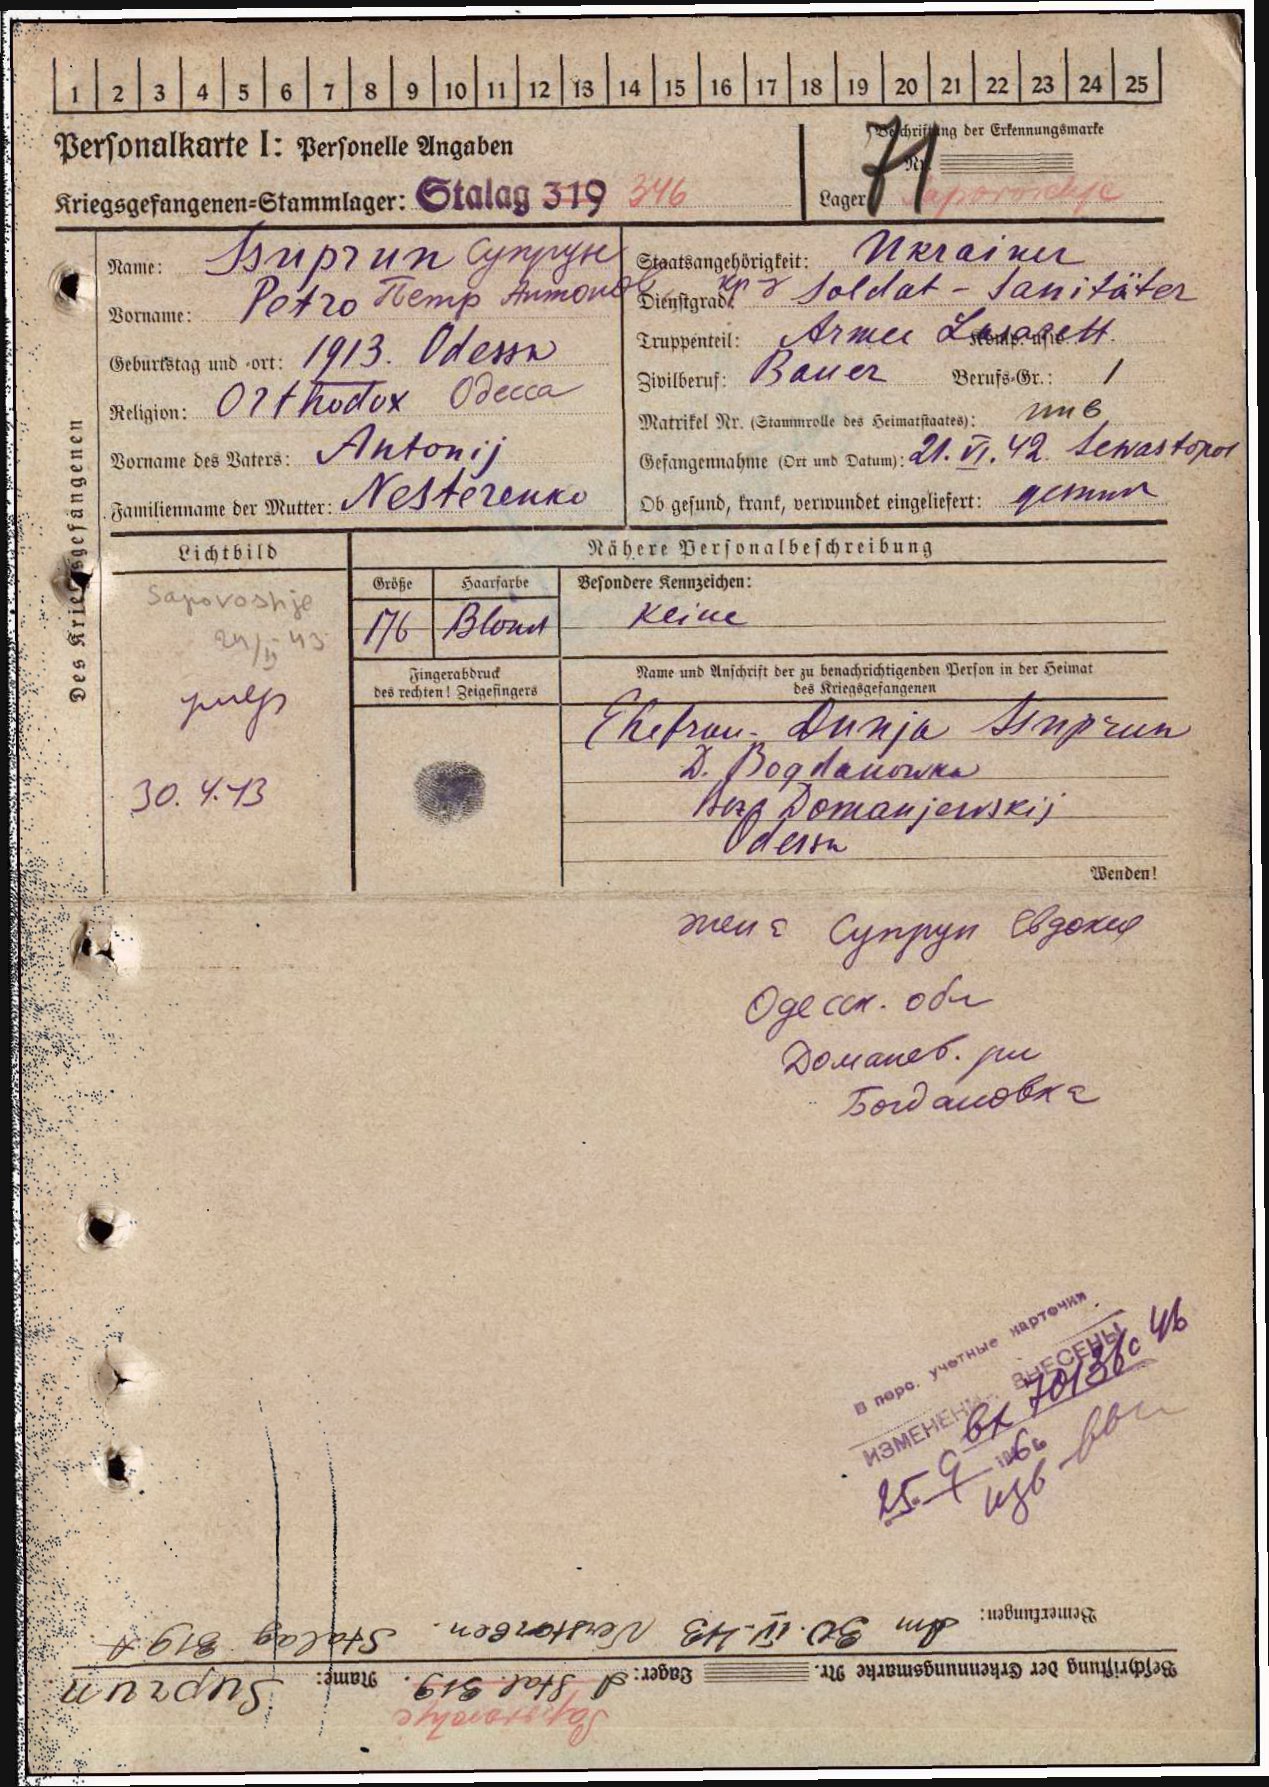 1 2 3 4 5 6 7 8 9 10 11 12 13 14 15 16 17 18 19 20 21 22 23 24 25
Personalkarte I: Personelle Angaben
Beschriftung der Erkennungsmarke
Nr.
71
Kriegsgefangenen-Stammlager: Stalag 319 346
Lager: Saporoshje
Des Kriegsgefangenen
Name: Ssuprun Супрун
Vorname: Petro Петр Антонов
Geburtstag und -ort: 1913. Odessa
Religion: Orthodox Одесса
Vorname des Vaters: Antonij
Familienname der Mutter: Nesterenko
Staatsangehörigkeit: Ukrainer
Dienstgrad: кр-ц Soldat - Sanitäter
Truppenteil: Armee Lasarett Komp. usw.
Zivilberuf: Bauer Berufs-Gr.: 1
Matrikel Nr. (Stammrolle des Heimatstaates):
Gefangennahme (Ort und Datum): 21. VI. 42. Sewastopol
Ob gesund, krank, verwundet eingeliefert: gesund
Lichtbild
Saporoshje
30. 4. 43
Nähere Personalbeschreibung
Größe Haarfarbe Besondere Kennzeichen:
176 Blond Keine
Fingerabdruck
des rechten! Zeigefingers
Name und Anschrift der zu benachrichtigenden Person in der Heimat
des Kriegsgefangenen
Ehefrau - Dunja Ssuprun
D. Bogdanowka
Domanjewskij
Odessa
Wenden!
жена Супрун Евдокия
Одесск. обл
Доманев. рн
Богдановка
В перс. учетные карточки
ИЗМЕНЕНИЯ ВНЕСЕНЫ
вх 46
25. 9
Bemerkungen: Am 30. IV. 43 Verstorben. Stalag 319 A
Beschriftung der Erkennungsmarke Nr. Lager: A Stal. 319. Name: Suprun
Saporoshje